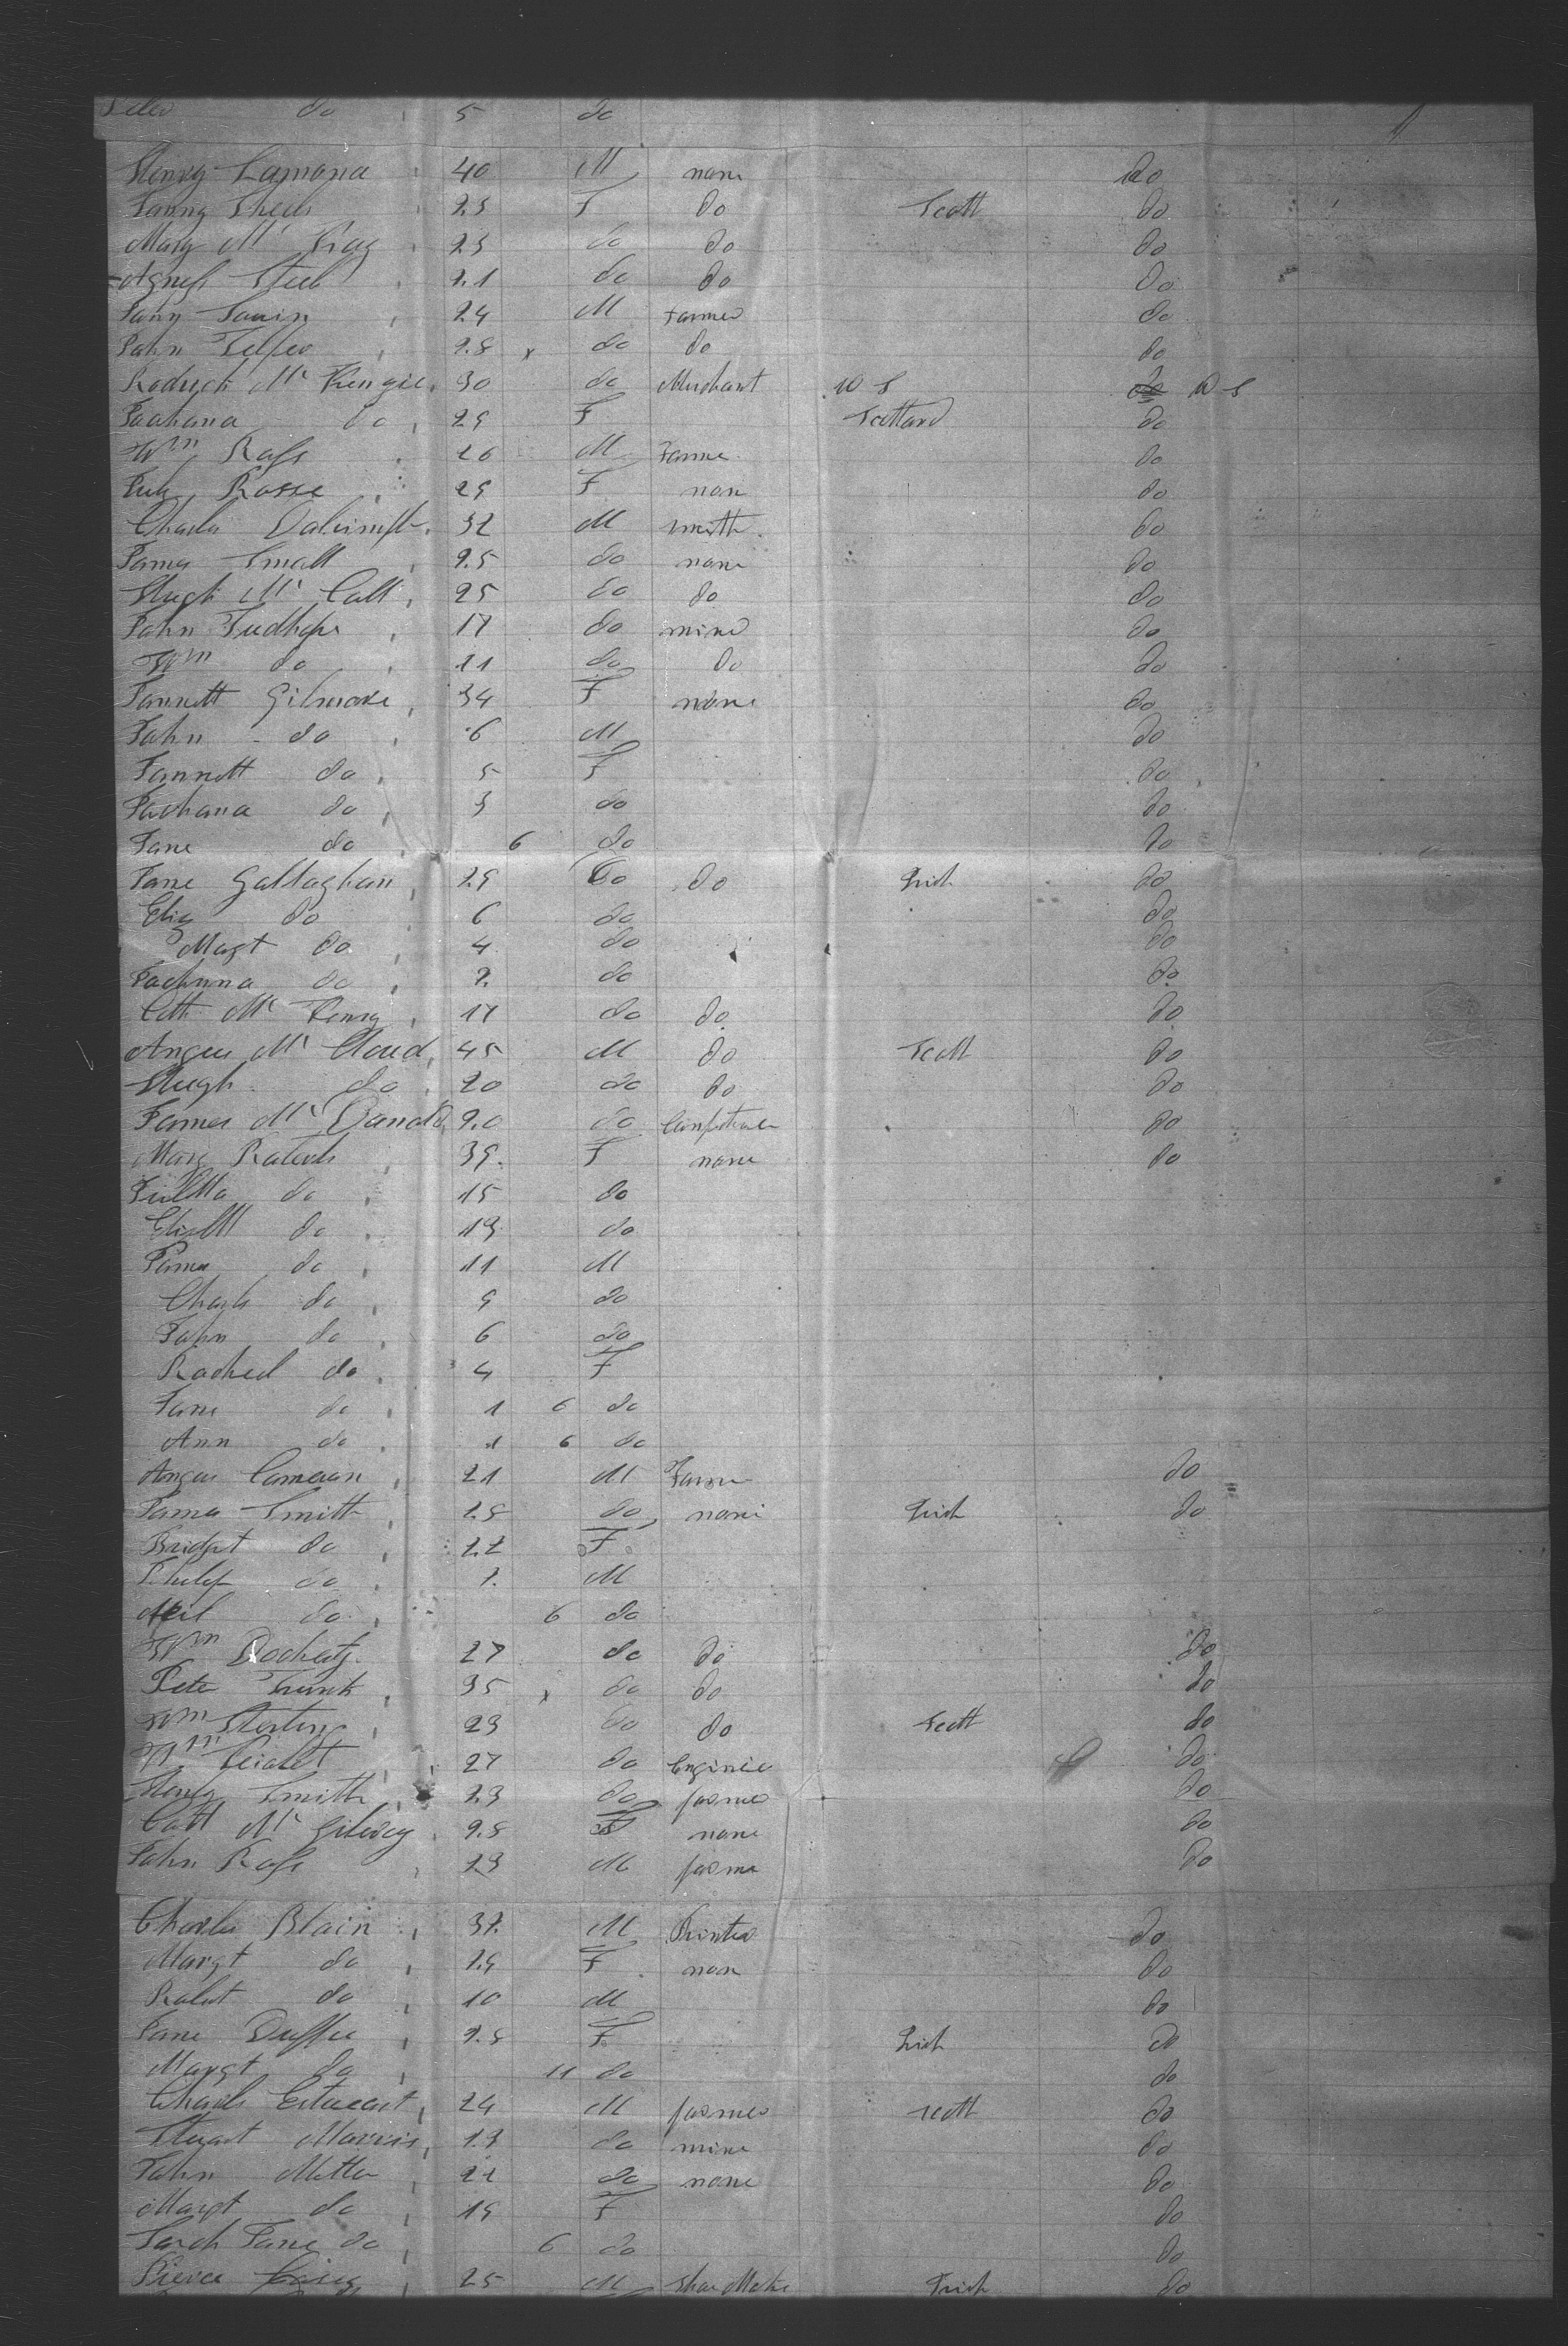 do 5 do
Henry Lamona 40 M none do
Fanny 23 F do Scott do
Mary Mc 23 do do do
Agness Steel 21 do do do
24 M Farmer do
John Telfer 28 x do do do
Rodrick Mc Kengie 30 do Merchant W S do W S
Joahana do 29 F Scotland do
Wm Ross 26 M Farme do
Rosse 29 F non do
Charles Dalrimple 32 M smith do
James Small 25 do none do
Hugh Mc Call 25 do do do
John Tudhope 17 do mine do
Wm do 11 do do do
Jannett Gilmore 34 F none do
John do 6 M do
Jannett do 5 F do
Joahana do 3 do do
Jane do 6 do do
Jane Gallaghan 29 do do Irish do
Eliz do 6 do do
Magt do 4 do do
Joehanna do 2 do do
Cath Mc Henry 17 do do do
Angus Mc Cloud 45 M do Scott do
Hugh do 20 do do do
James Mc Danald 20 do do
Mary Roberts 39 F none do
do 15 do
do 13 do
James do 11 M
Charls do 9 do
John do 6 do
Rachel do 4 F
Jane do 1 6 do
Ann do 1 6 do
Angus Cameron 21 M Farme do
James Smith 28 do none Irish do
Bridget do 22 F
Philip do 2 M
Neil do 6 do
Wm Dochaty 27 do do do
Peter 35 x do do do
Wm Sterling 23 do do Scott do
Wm 27 do Enginee do
Henry Smith 23 do farmer do
Catt Mc Gilvery 28 F none do
John Ross 23 M farme do
Charles Blain 37 M Printer do
Margt do 29 F non do
Robert do 10 M do
Jane Duffee 28 F Irish do
Margt do 11 do do
Charls 24 M farmer Scott do
Stuart Morris 23 do mine do
John 22 do none do
Margt do 19 F do
Sarah Jane do 6 do do
Pierce 25 M Shoe Make Irish do